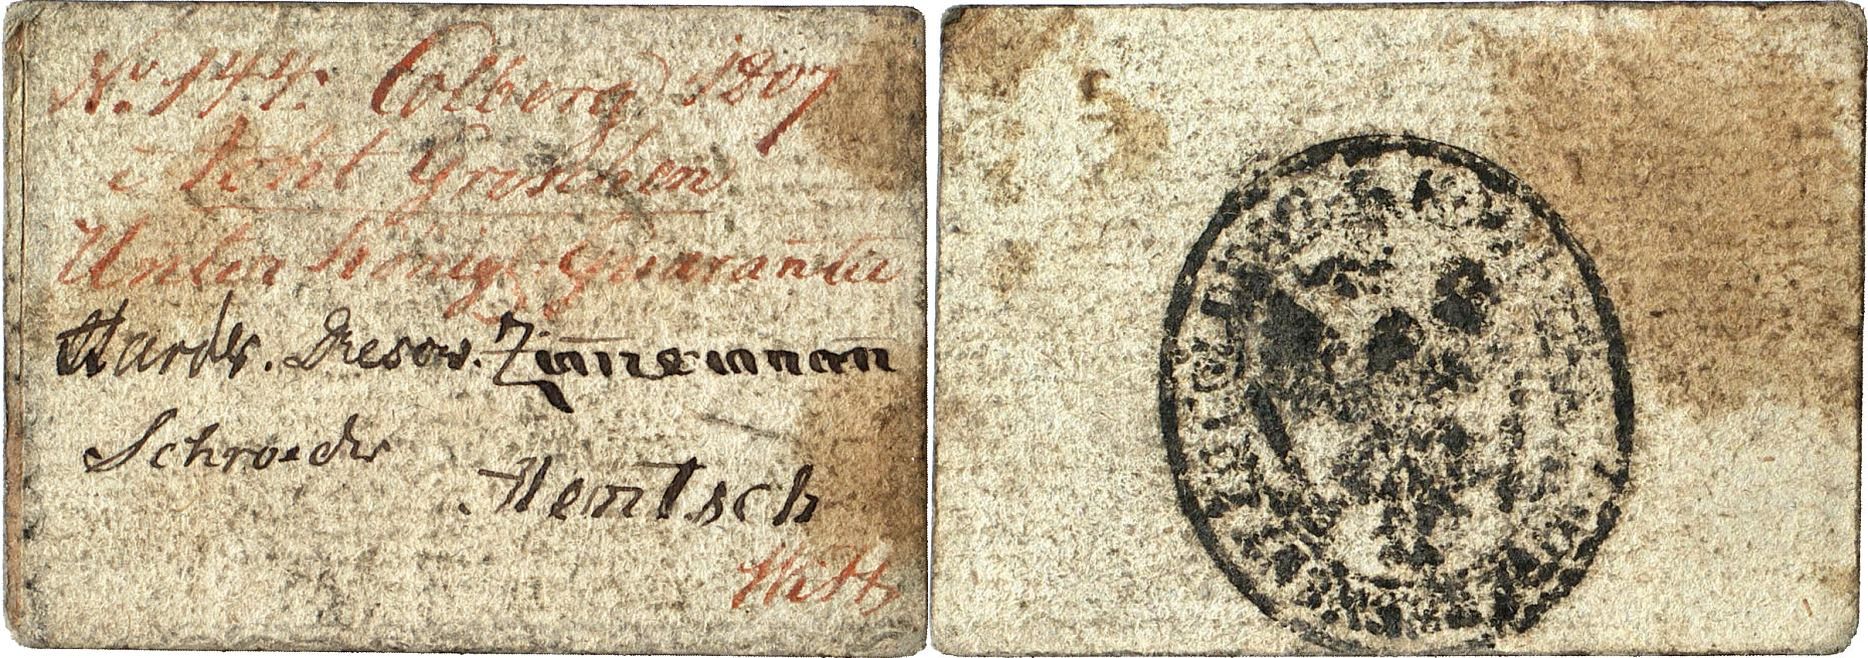 No. 144. Colberg 1807
Acht Groschen
Unter Königl. Guarantie
Harder. Dresow. Zimmermann
Schroeder
Hentsch